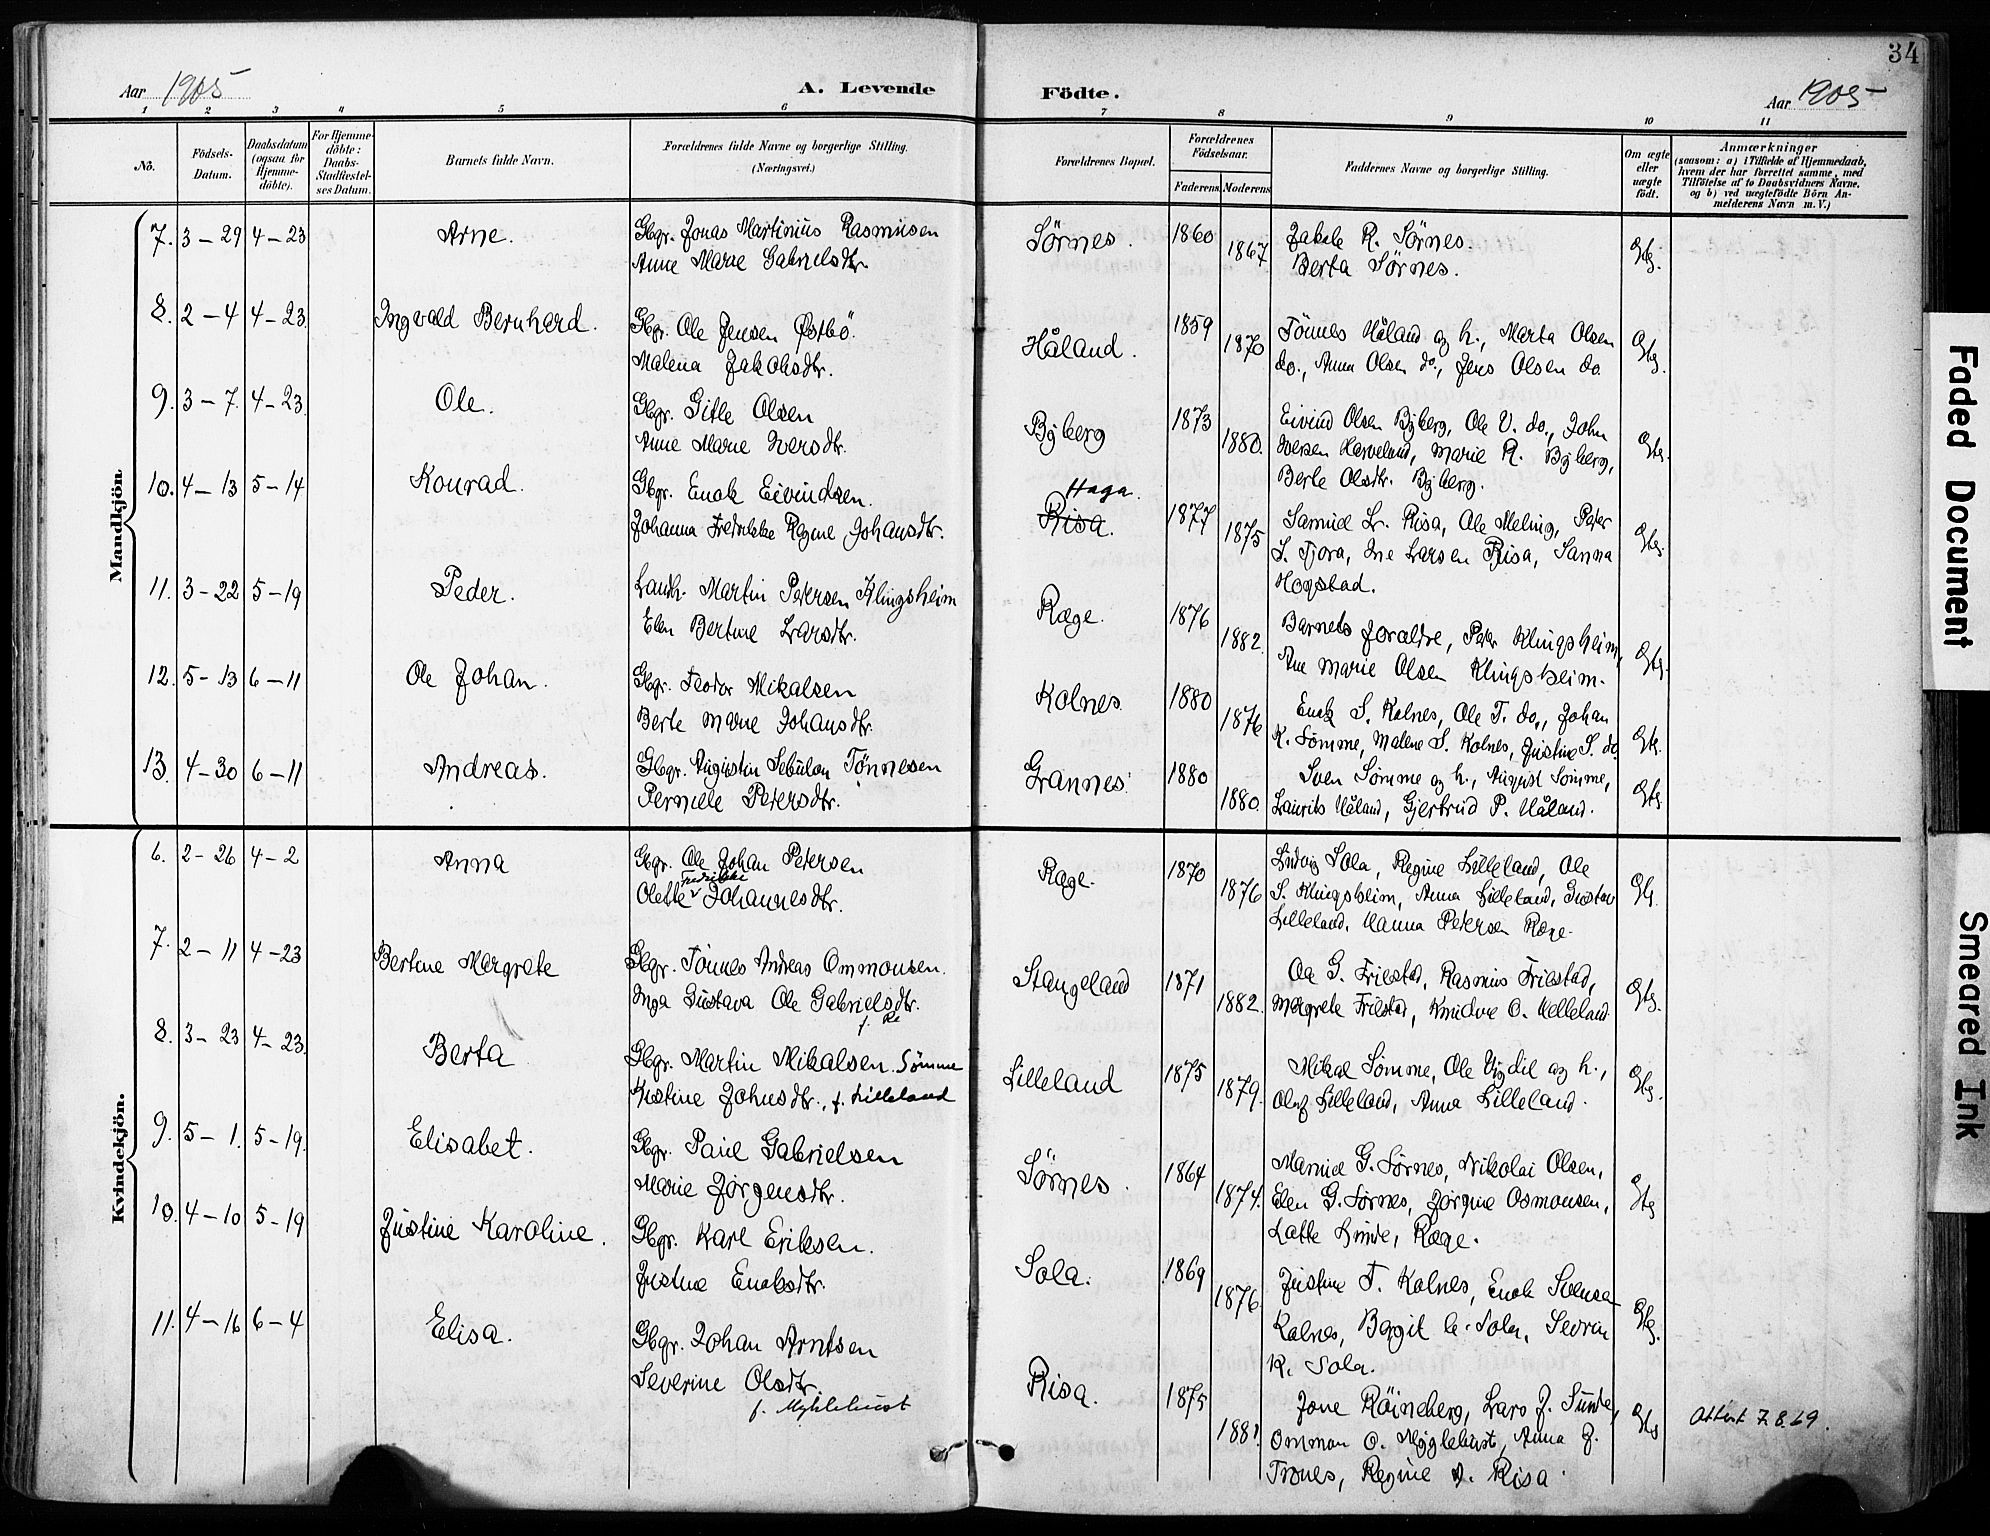 34
Aar 1905
A. Levende Födte.
Aar 1905
1 2 3 4 5 6 7 8 9 10 11
No.
Födsels-Datum.
Daabsdatum (ogsaa for Hjemme-döbte).
For Hjemme-döbte: Daabs-Stadfæstel-ses Datum.
Barnets fulde Navn.
Forældrenes fulde Navne og borgerlige Stilling. (Næringsvei.)
Forældrenes Bopæl.
Forældrenes Födselsaar.
Faderens. Moderens.
Faddernes Navne og borgerlige Stilling.
Om ægte eller uægte födt.
Anmærkninger
(saasom: a) i Tilfælde af Hjemmedaab, hvem der har forrettet samme, med Tilföielse af to Daabsvidners Navne, og b) ved uægtefödte Börn An-melderens Navn m. V.)
Mandkjön.
7. 3-29 4-23 Arne. Gbgr. Jonas Martinius Rasmusen Sörnes. 1860 Jakob R. Sörnes. Egte.
Anne Marie Gabrielsdtr. 1867 Berta Sörnes.
8. 2-4 4-23. Ingvald Bernhard. Gbgr. Ole Jensen Østbö. Håland. 1859 Tönnes Håland og h., Marta Olsen Egte.
Malena Jakobsdtr. 1870 do., Anna Olsen do., Jens Olsen do.
9. 3-7. 4-23. Ole. Gbgr. Gitle Olsen Byberg 1873 Eivind Olsen Byberg, Ole V. do., John Egte.
Anne Marie Iversdtr. 1880. Iversen Harveland, Marie R. Byberg,
Berte Olsdtr. Byberg.
10. 4-13 5-14 Konrad. Gbgr. Enok Eivindsen. Haga. Risa. 1877 Samuel Lr. Risa, Ole Meling, Peter Egte.
Johanna Fredrikke Regine Johansdtr. 1875 S. Tjora, Ine Larsen Risa, Sanna
Hogstad.
11. 3-22 5-19 Peder. Landh. Martin Petersen Klingsheim Ræge. 1876 Barnets forældre, Peter Klingsheim, Egte.
Elen Bertine Larsdtr. 1882. Ane Marie Olsen Klingsheim.
12. 5-13 6-11 Ole Johan. Gbgr. Teodor Mikalsen Kolnes. 1880 Enok S. Kolnes, Ole T. do., Johan Egte.
Berte Marie Johansdtr. 1876 K. Sömme, Malene S. Kolnes, Justine S. do
13. 4-30 6-11 Andreas. Gbgr. Augustin Sebulon Tönnesen Grannes. 1880 Sven Sömme og h., August Sömme, Egte
Pernille Petersdtr. 1880. Laurits Håland, Gjertrud P. Håland.
Kvindekjön.
6. 2-26 4-2 Anna Gbgr. Ole Johan Petersen Ræge. 1870 Ludvig Sola, Regine Lilleland, Ole Egte.
Olette Fredrikke Johannesdtr. 1876 S. Klingsheim, Anna Lilleland, Gustav
Lilleland, Hanna Petersen Ræge.
7. 2-11 4-23 Bertine Margrete Gbgr. Tönnes Andreas Ommonsen. Stangeland 1871 Oa G. Friestad, Rasmus Friestad, Egte.
Inga Gustava Ole Gabrielsdtr. f. Re 1882. Margrete Friestad, Knudve O. Helleland
8. 3-23 4-23. Berta Gbgr. Martin Mikalsen Sömme Lilleland 1875 Mikal Sömme, Ole Vigdel og h., Egte.
Kristine Johnsdtr., f. Lilleland 1879. Oluf Lilleland, Anna Lilleland.
9. 5-1. 5-19. Elisabet. Gbgr. Paul Gabrielsen Sörnes. 1864 G. Sörnes, Nikolai Olsen, Egte
Marie Jörgensdtr. 1874. Elen G. Sörnes, Jörgine Osmonsen,
Lunde, Ræge.
10. 4-10 5-19 Justine Karoline. Gbgr. Karl Eriksen. Sola. 1869 Justine T. Kolnes, Enok Svensen Egte.
Justine Enoksdtr. 1876. Kolnes, Bergit E. Sola, Sevrin
K. Sola.
11. 4-16 6-4 Elisa. Gbgr. Johan Arntsen Risa. 1875 Jone Röineberg, Lars J. Sunde, Egte
Severine Olsdtr. f. Myklehust 1881. Ommon O. Myglehust, Anna J. Attest 7.8.69.
Trones, Regine A. Risa.
Faded Document
Smeared Ink